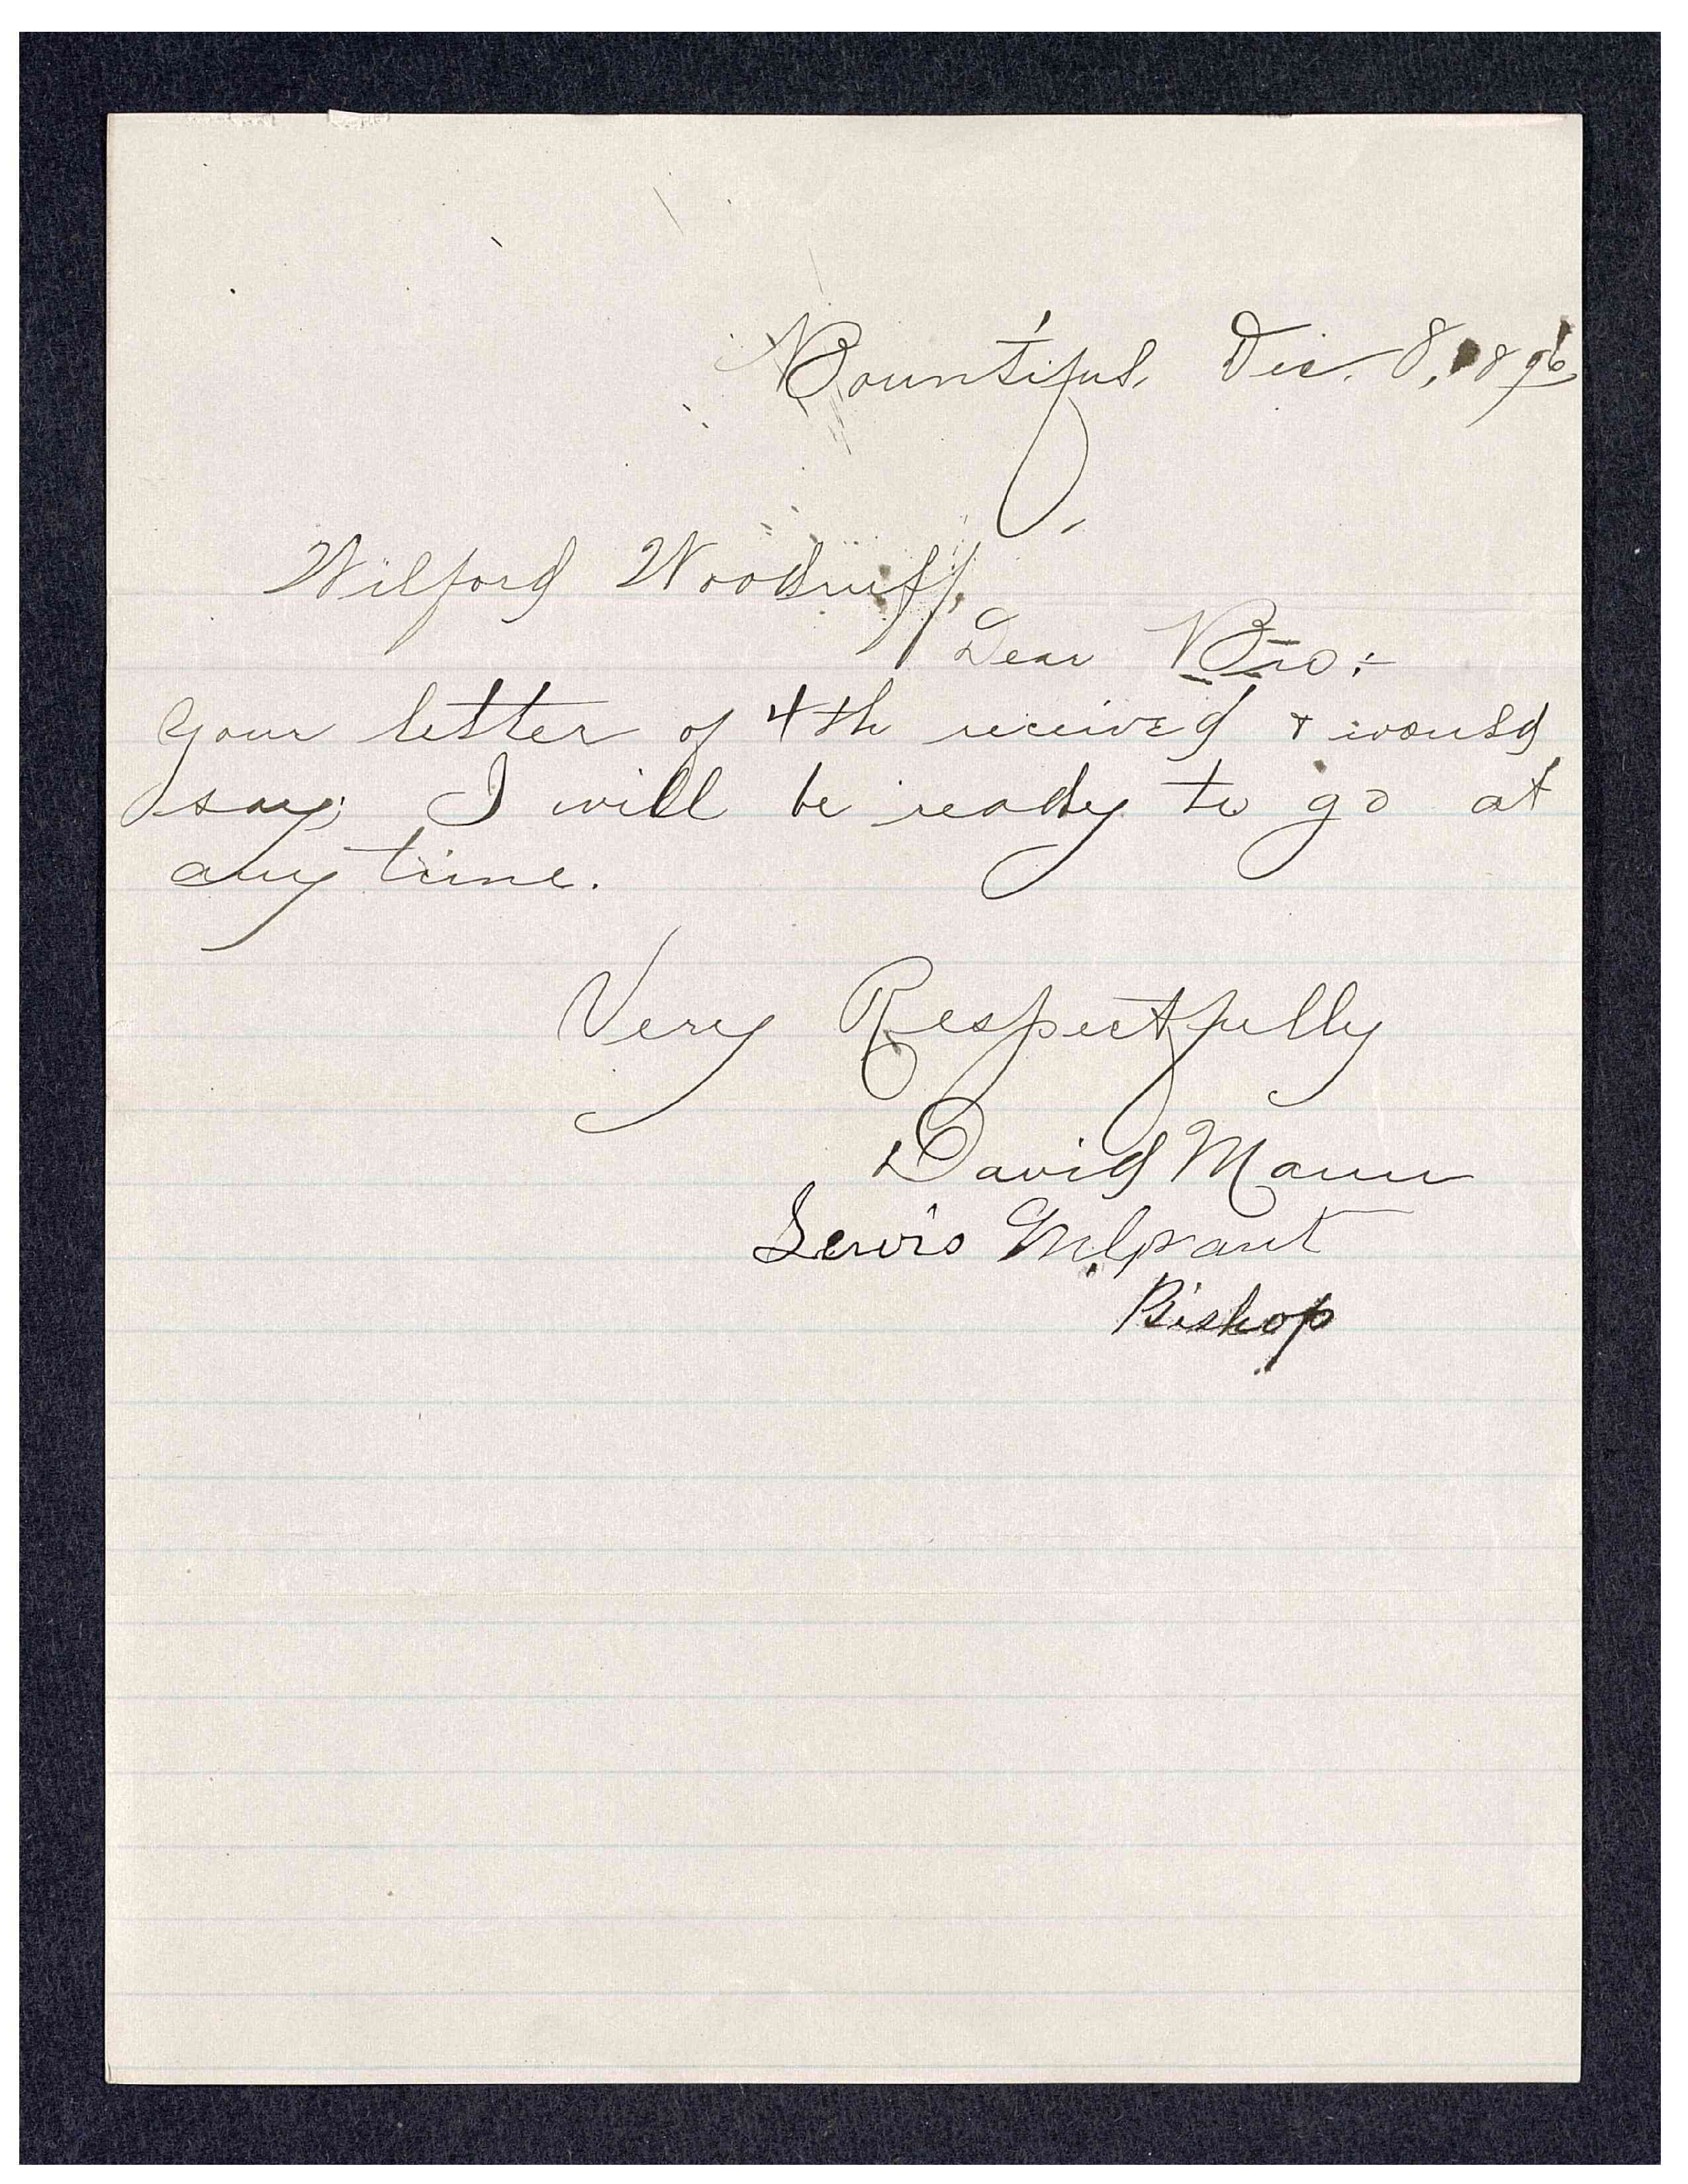 Bountiful, Dec. 8, 1896
Wilford Woodruff,
Dear Bro:-
Your letter of 4th received & would
say; I will be ready to go at
any time.
Very Respectfully
David Mann
Lewis M. Grant
Bishop